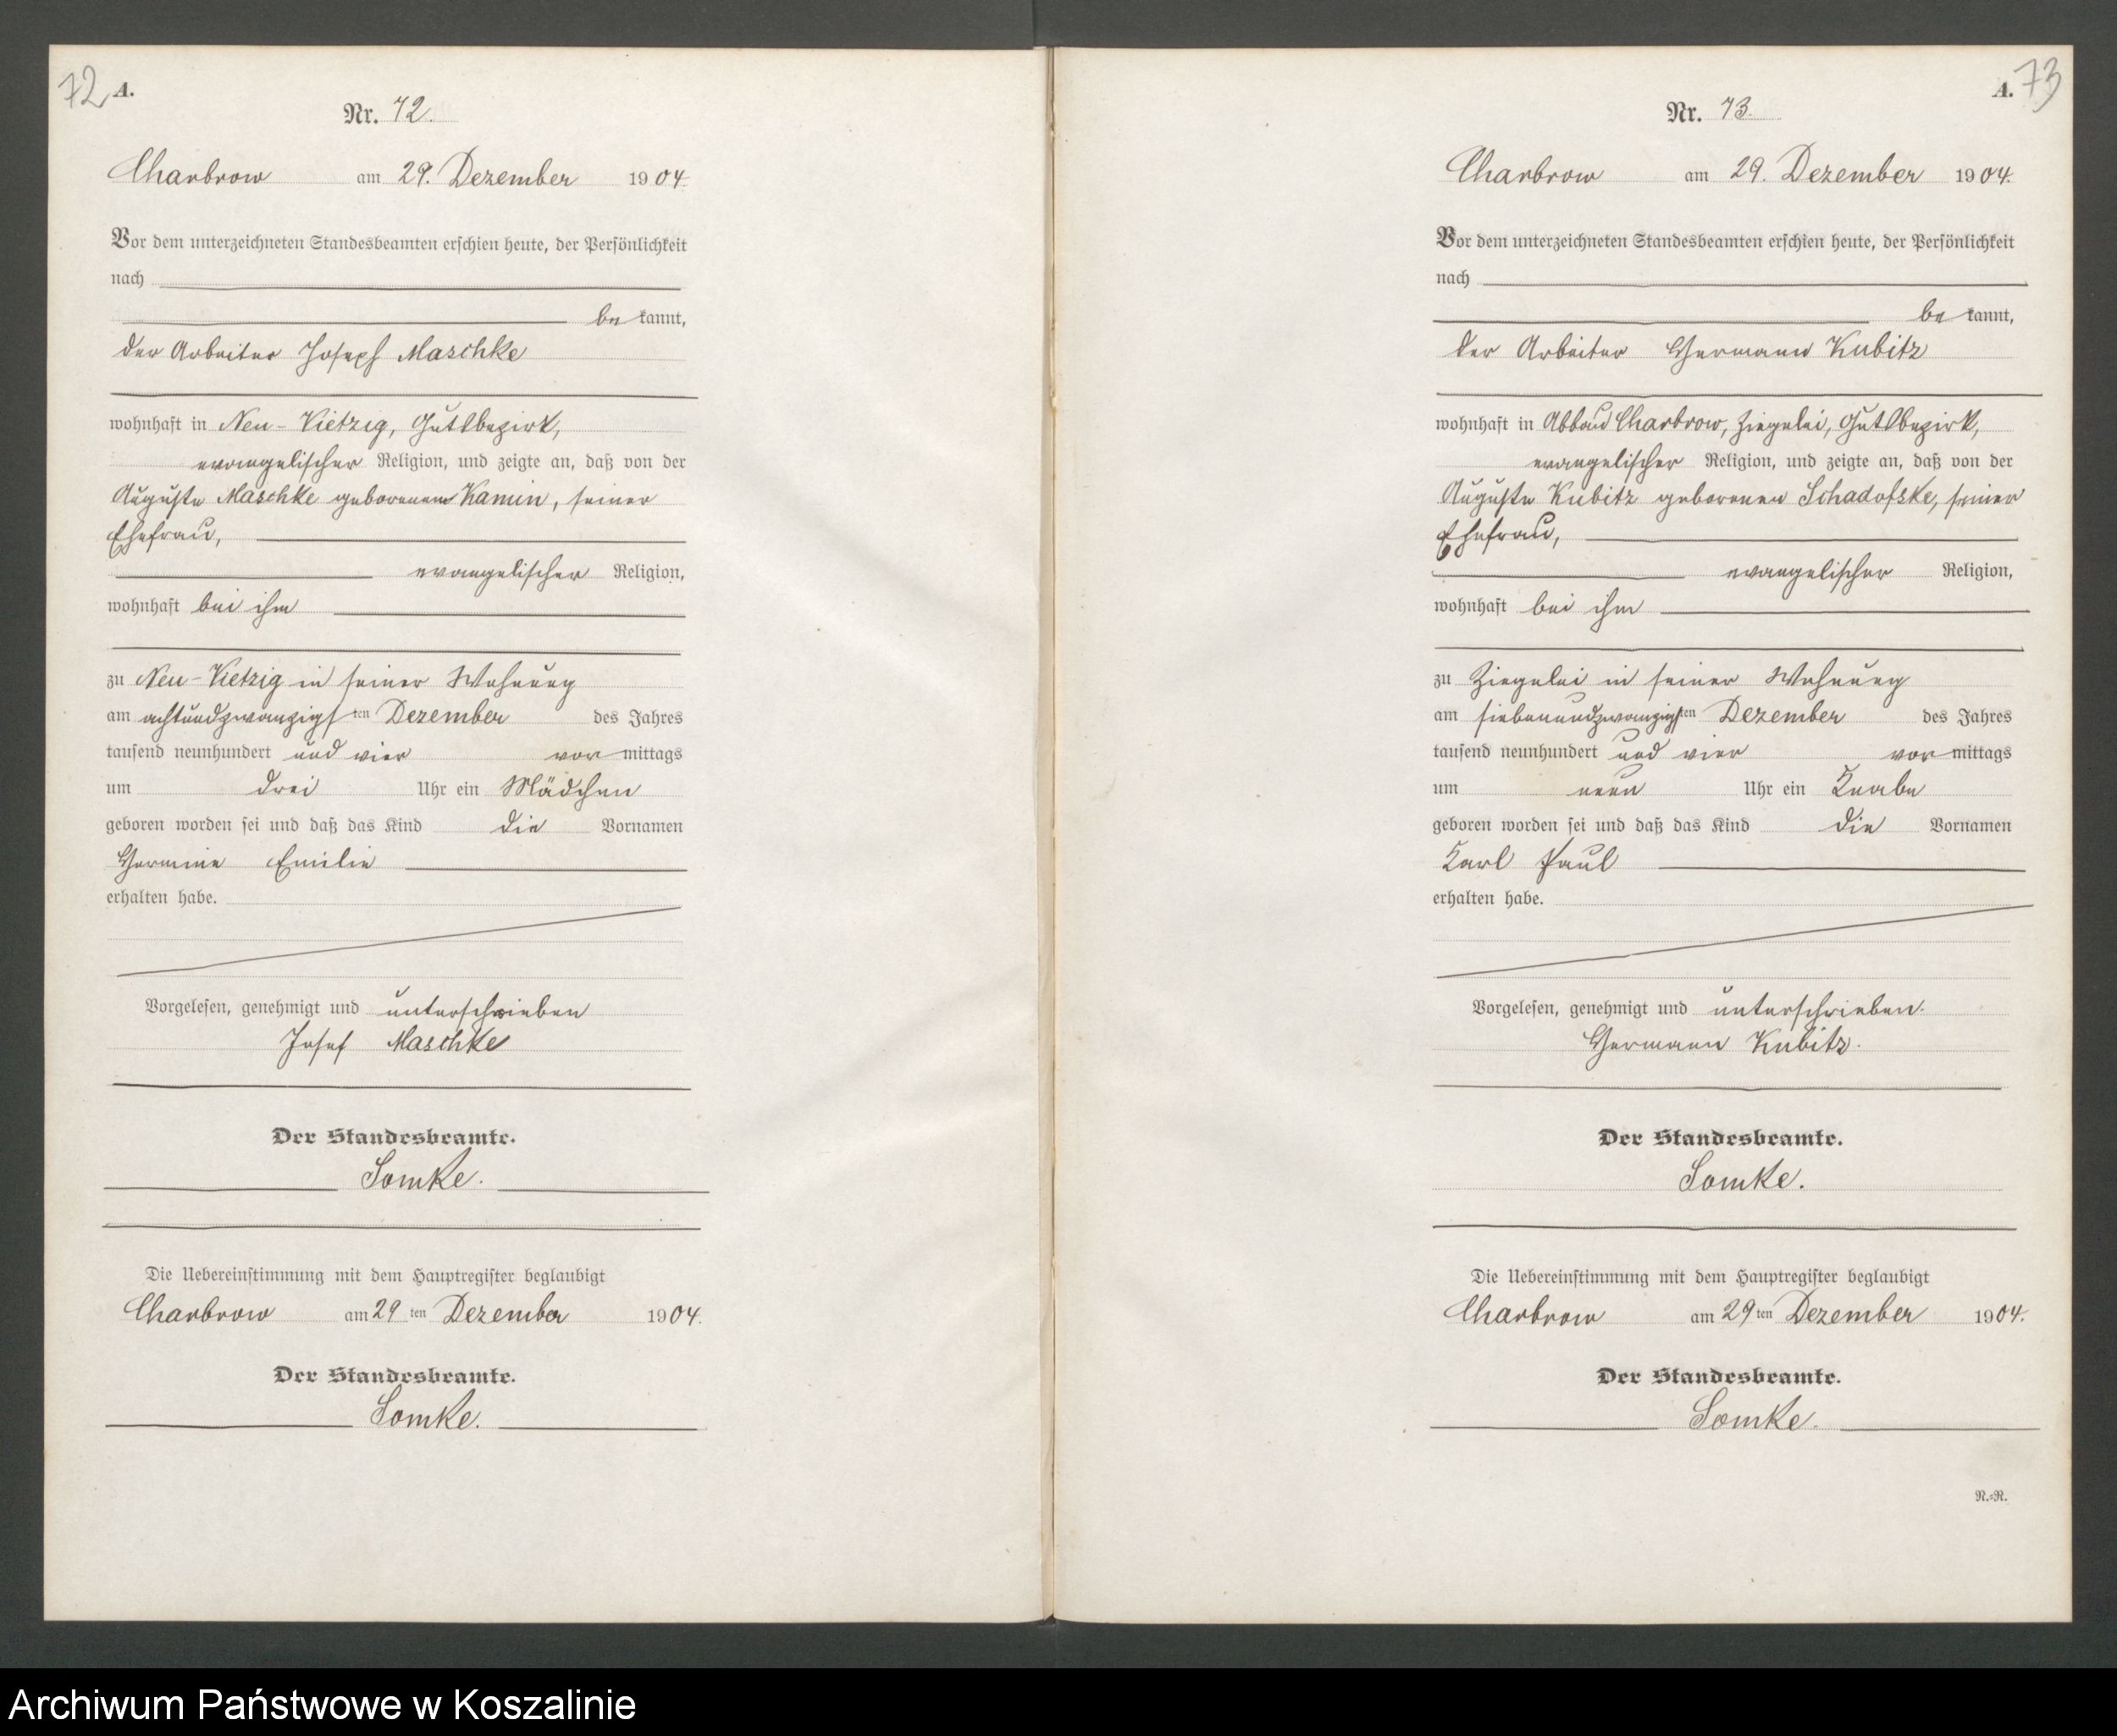 72 A.
Nr. 72.
Charbrow am 29. Dezember 1904.
Vor dem unterzeichneten Standesbeamten erschien heute, der Persönlichkeit
nach
be kannt,
der Arbeiter Joseph Maschke
wohnhaft in Neu-Vietzig, Gutsbezirk,
evangelischer Religion, und zeigte an, daß von der
Auguste Maschke geborenen Kamin, seiner
Ehefrau,
evangelischer Religion,
wohnhaft bei ihm
zu Neu-Vietzig in seiner Wohnung
am achtundzwanzigsten Dezember des Jahres
tausend neunhundert und vier vormittags
um drei Uhr ein Mädchen
geboren worden sei und daß das Kind die Vornamen
Hermine Emilie
erhalten habe.
Vorgelesen, genehmigt und unterschrieben
Josef Maschke
Der Standesbeamte.
Somke.
Die Uebereinstimmung mit dem Hauptregister beglaubigt
Charbrow am 29ten Dezember 1904.
Der Standesbeamte.
Somke.
A. 73
Nr. 73.
Charbrow am 29. Dezember 1904.
Vor dem unterzeichneten Standesbeamten erschien heute, der Persönlichkeit
nach
be kannt,
der Arbeiter Hermann Kubitz
wohnhaft in Abbau Charbrow, Ziegelei, Gutsbezirk,
evangelischer Religion, und zeigte an, daß von der
Auguste Kubitz geborenen Schadofske, seiner
Ehefrau,
evangelischer Religion,
wohnhaft bei ihm
zu Ziegelei in seiner Wohnung
am siebenundzwanzigsten Dezember des Jahres
tausend neunhundert und vier vormittags
um neun Uhr ein Knabe
geboren worden sei und daß das Kind die Vornamen
Karl Paul
erhalten habe.
Vorgelesen, genehmigt und unterschrieben.
Hermann Kubitz.
Der Standesbeamte.
Somke.
Die Uebereinstimmung mit dem Hauptregister beglaubigt
Charbrow am 29ten Dezember 1904.
Der Standesbeamte.
Somke.
R.=R.
Archiwum Państwowe w Koszalinie